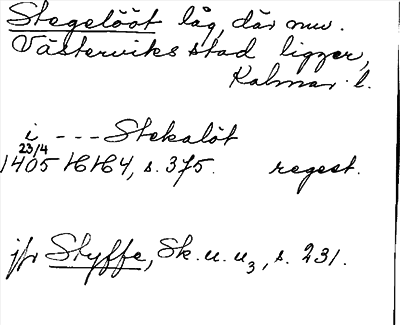 Stegelööt låg, där nuv.
Västerviks stad ligger,
Kalmar l.
i - - - Stekalöt
23/4
1405 HH4, s. 375. regest.
jfr Styffe, Sk. u. u3, s. 231.